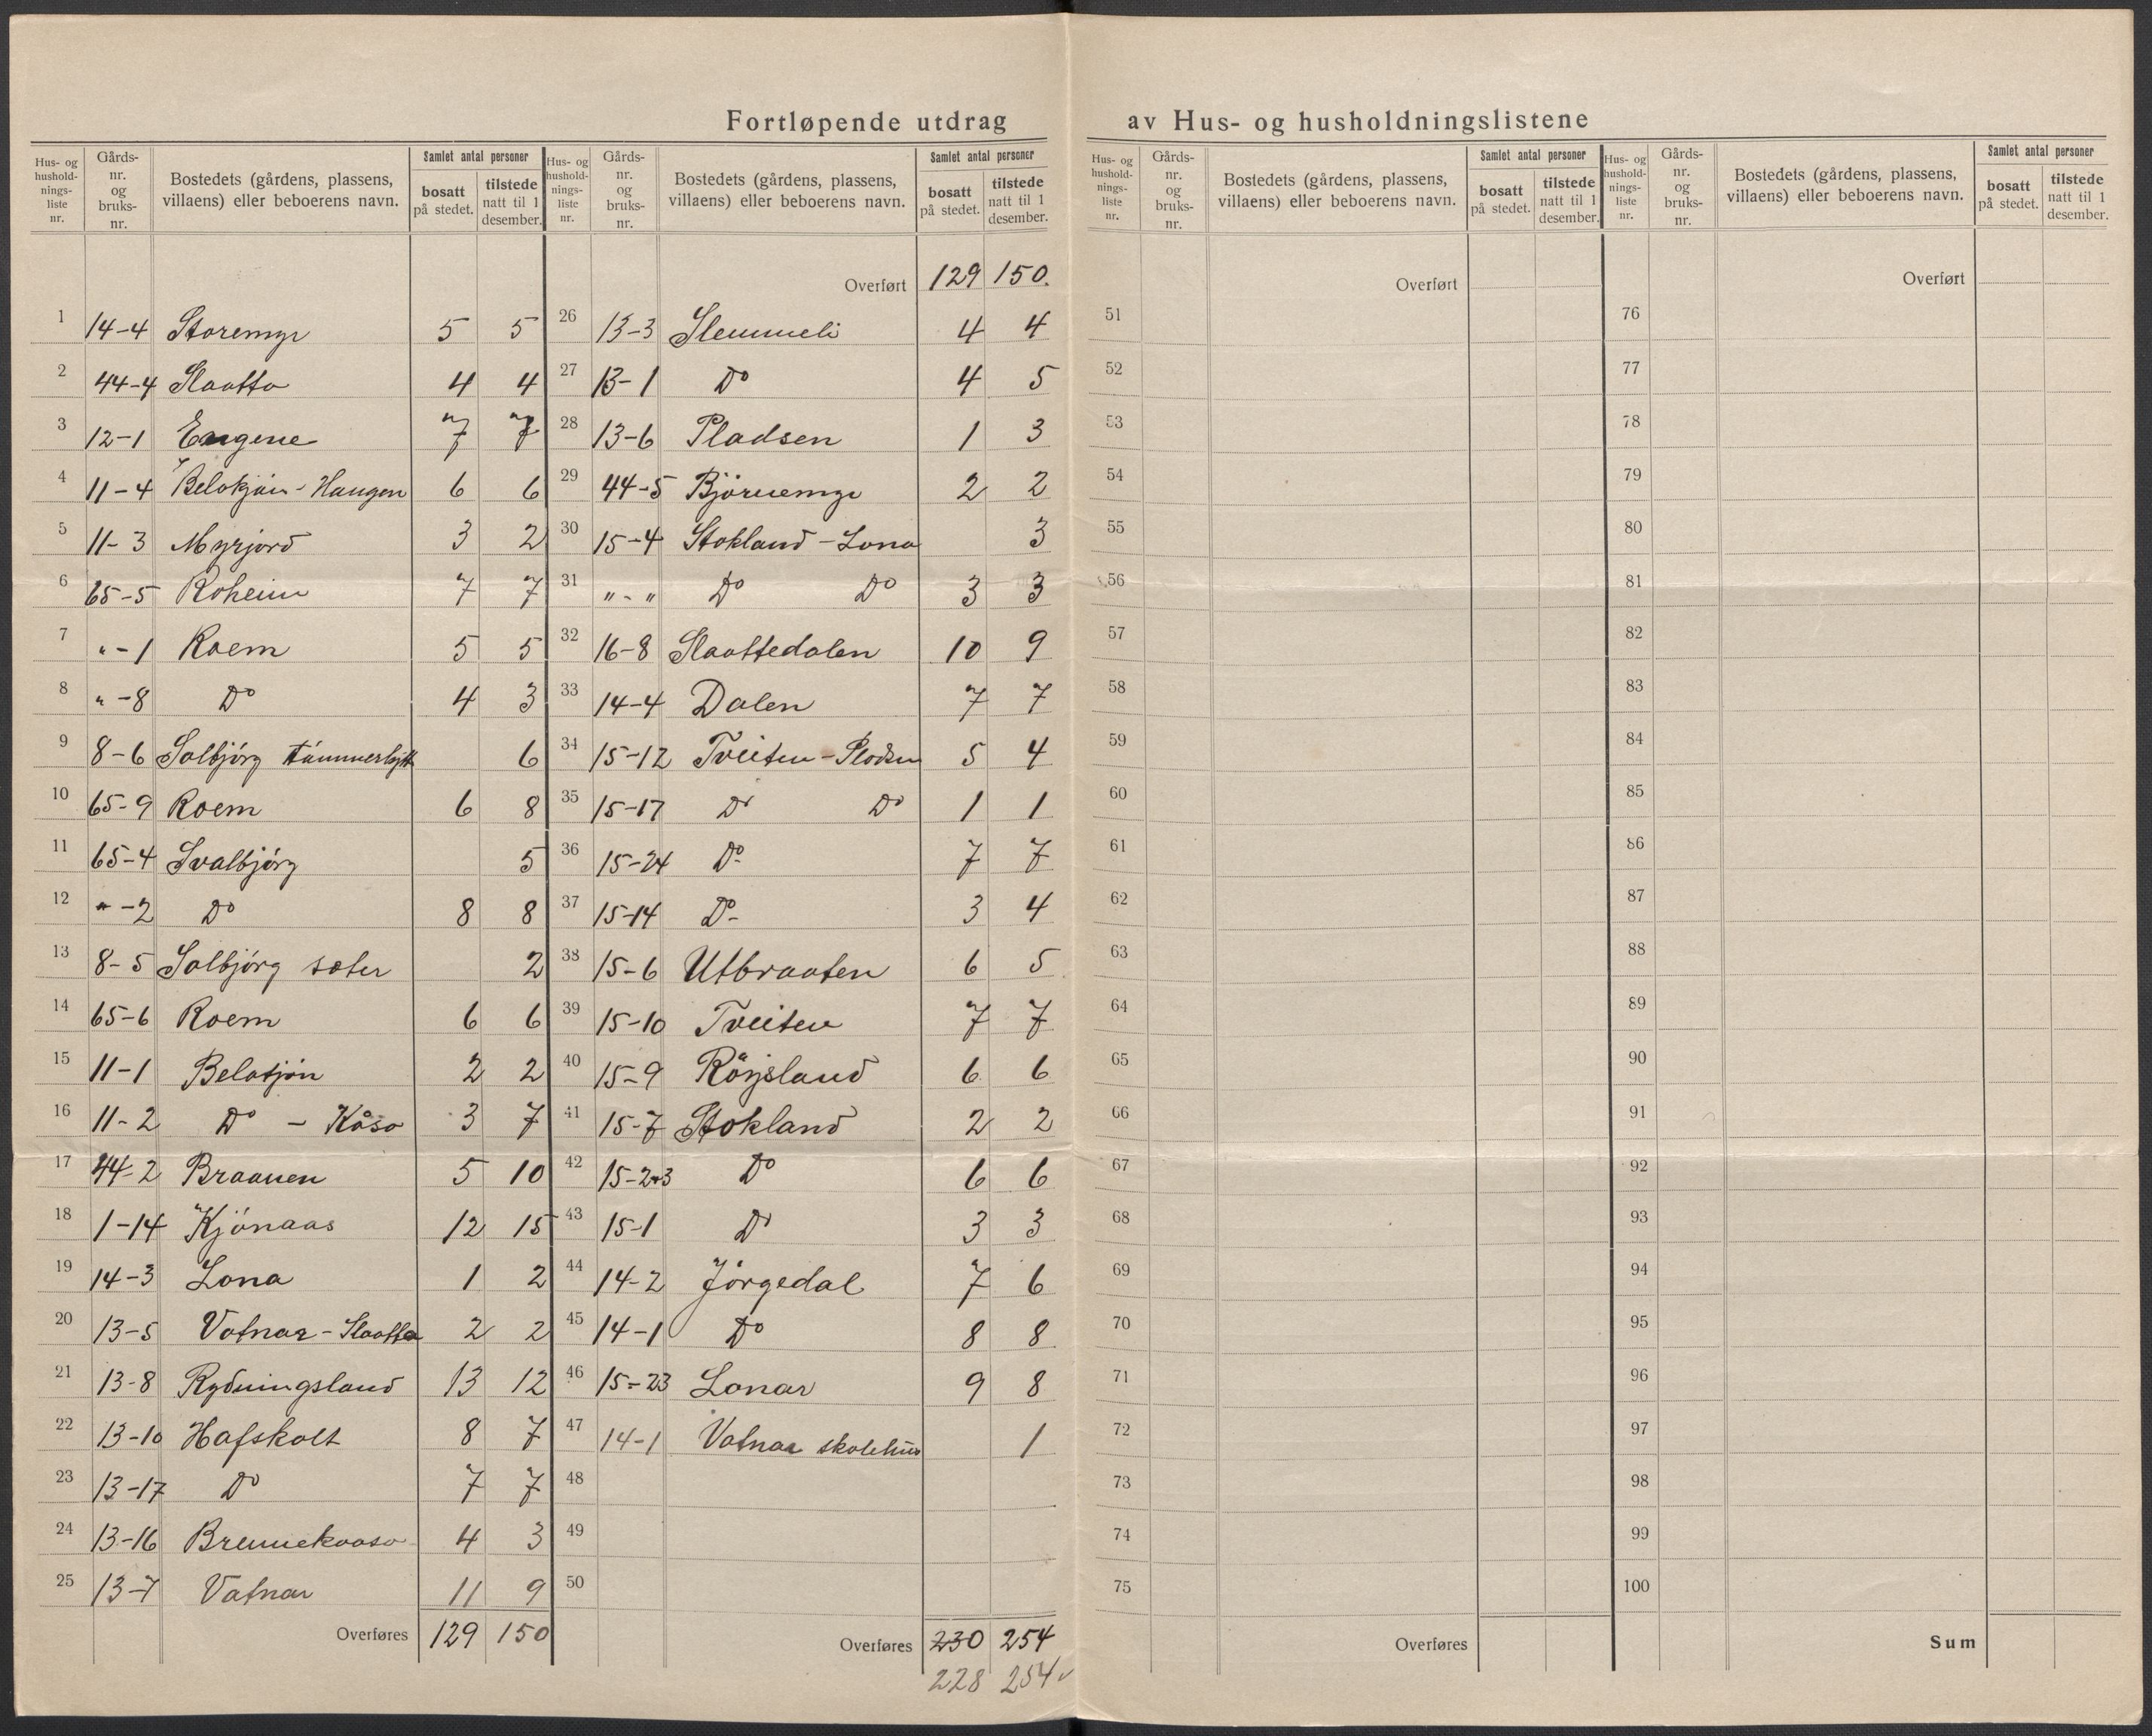 Fortløpende utdrag av Hus- og husholdningslistene
Hus- og hushold-nings-liste nr. Gårds-nr. og bruks-nr. Bostedets (gårdens, plassens, villaens) eller beboerens navn. Samlet antal personer bosatt på stedet. tilstede natt til 1 desember.
1 14-4 Storemyr 5 5
2 44-4 Slaatta 4 4
3 12-1 Engene 7 7
4 11-4 Haugen 6 6
5 11-3 Myrjord 3 2
6 65-5 Roheim 7 7
7 "-1 Roem 5 5
8 "-8 Do 4 3
9 8-6 Solbjörg 6
10 65-9 Roem 6 8
11 65-4 Svalbjörg 5
12 "-2 Do 8 8
13 8-5 Solbjörg sæter 2
14 65-6 Roem 6 6
15 11-1 Belatjön 2 2
16 11-2 Do - Kåsa 3 7
17 44-2 Braanen 5 10
18 1-14 Kjönaas 12 15
19 14-3 Lona 1 2
20 13-5 Vatnar-Slaatta 2 2
21 13-8 Rydningsland 13 12
22 13-10 Hafskolt 8 7
23 13-17 Do 7 7
24 13-16 Brennekaasa 4 3
25 13-7 Vatnar 11 9
Overføres 129 150
Hus- og hushold-nings-liste nr. Gårds-nr. og bruks-nr. Bostedets (gårdens, plassens, villaens) eller beboerens navn. Samlet antal personer bosatt på stedet. tilstede natt til 1 desember.
Overført 129 150.
26 13-3 Slemmeli 4 4
27 13-1 Do 4 5
28 13-6 Pladsen 1 3
29 44-5 Björnemyr 2 2
30 15-4 Stokland-Lona 3
31 "-" Do Do 3 3
32 16-8 Slaattedalen 10 9
33 14-4 Dalen 7 7
34 15-12 Tveiten-Pladsen 5 4
35 15-17 Do Do 1 1
36 15-24 Do 7 7
37 15-14 Do 3 4
38 15-6 Utbraaten 6 5
39 15-10 Tveiten 7 7
40 15-9 Röysland 6 6
41 15-7 Stokland 2 2
42 15-2+3 Do 6 6
43 15-1 Do 3 3
44 14-2 Jörgedal 7 6
45 14-1 Do 8 8
46 15-23 Lonar 9 8
47 14-1 Vatnar skolehus 1
48
49
50
Overføres 230 254
228 254
Hus- og hushold-nings-liste nr. Gårds-nr. og bruks-nr. Bostedets (gårdens, plassens, villaens) eller beboerens navn. Samlet antal personer bosatt på stedet. tilstede natt til 1 desember.
Overført
51
52
53
54
55
56
57
58
59
60
61
62
63
64
65
66
67
68
69
70
71
72
73
74
75
Overføres
Hus- og hushold-nings-liste nr. Gårds-nr. og bruks-nr. Bostedets (gårdens, plassens, villaens) eller beboerens navn. Samlet antal personer bosatt på stedet. tilstede natt til 1 desember.
Overført
76
77
78
79
80
81
82
83
84
85
86
87
88
89
90
91
92
93
94
95
96
97
98
99
100
Sum